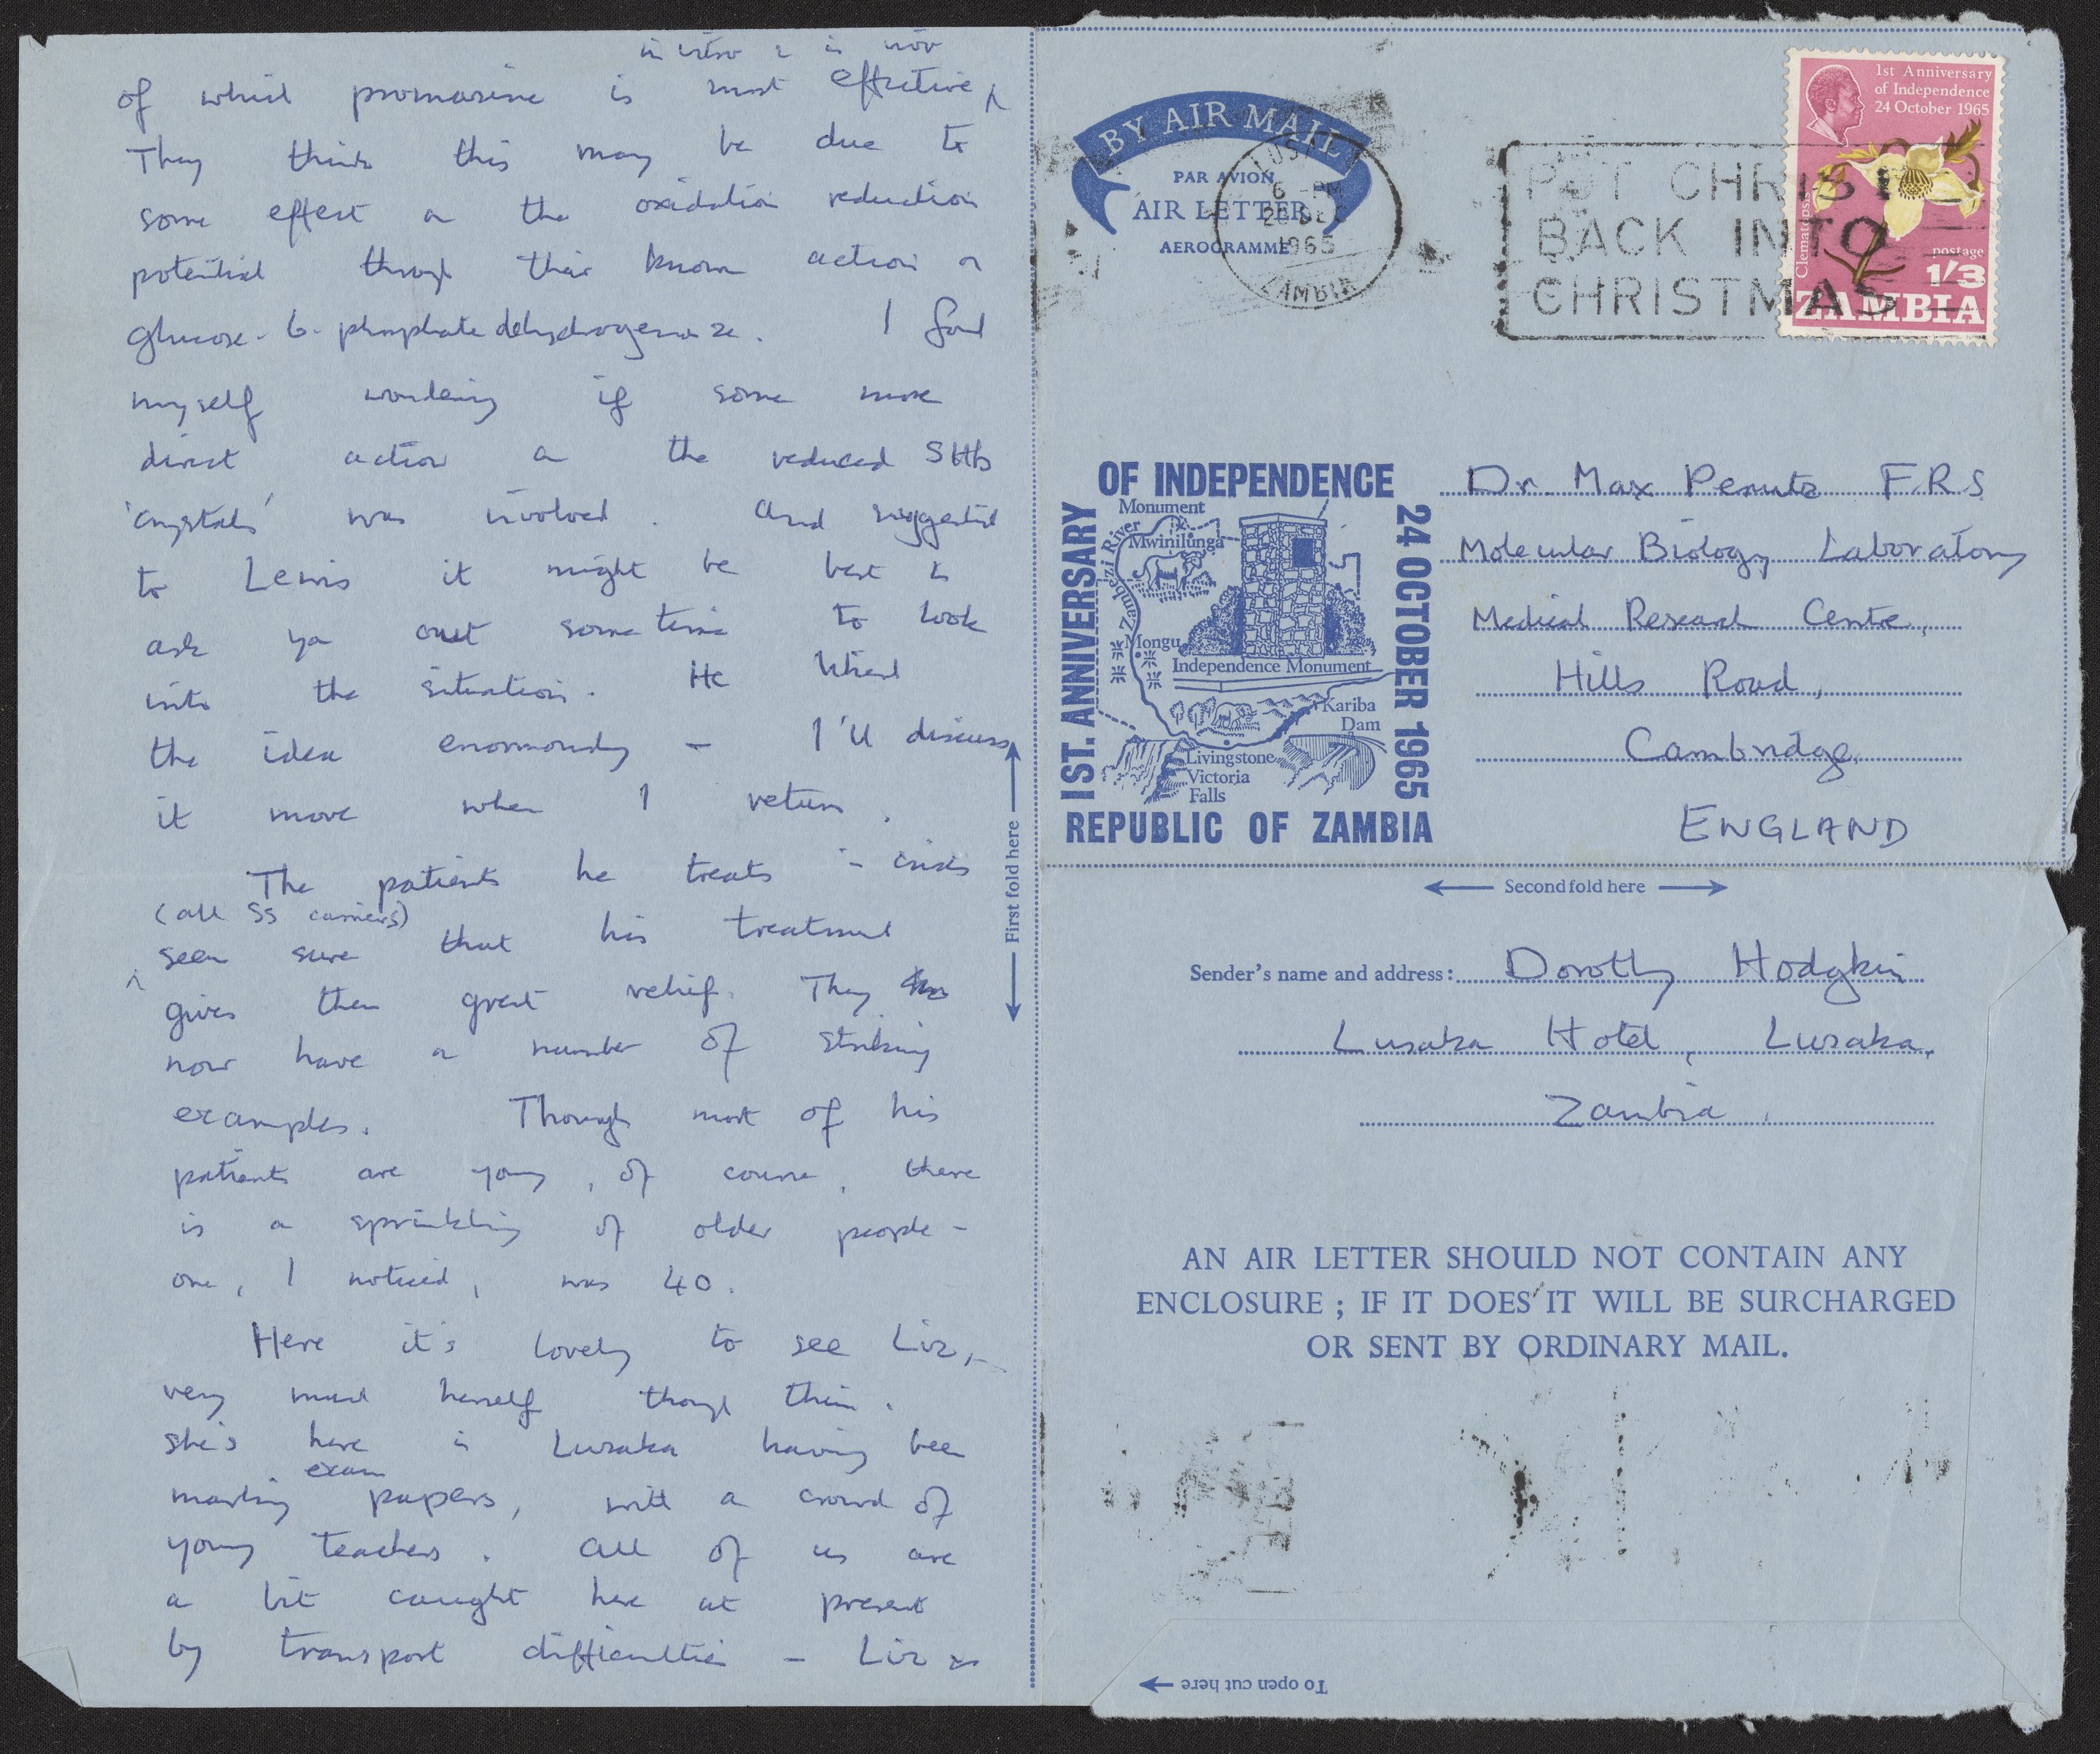 in vitro & in vivo
of which promazine is most effective
They think this may be due to
some effect on the oxidation reduction
potential through their known action on
glucose-6-phosphate dehydrogenase. I found
myself wondering if some more
direct action on the reduced SHb
'crystals' was involved. And suggested
to Lewis it might be best to
ask you out sometime to look
into the situation. He liked
the idea enormously – I'll discuss
it more when I return.
The patients he treats in crisis
(all SS carriers)
seem sure that his treatment
gives them great relief. They
now have a number of striking
examples. Though most of his
patients are young, of course, there
is a sprinkling of older people –
one, I noticed, was 40.
Here it's lovely to see Liz, –
very much herself though thin.
She's here in Lusaka having been
exam
marking papers, with a crowd of
young teachers. All of us are
a bit caught here at present
by transport difficulties – Liz
First fold here
BY AIR MAIL
PAR AVION
AIR LETTER
AEROGRAMME
6 - PM
1965
ZAMBIA
PUT CHRIST
BACK INTO
CHRISTMAS
1st Anniversary
of Independence
24 October 1965
Clematopsis
postage
1/3
ZAMBIA
1ST. ANNIVERSARY
OF INDEPENDENCE
24 OCTOBER 1965
REPUBLIC OF ZAMBIA
Monument
Mwinilunga
Zambezi River
Mongu
Independence Monument
Kariba
Dam
Livingstone
Victoria
Falls
Dr. Max Perutz F.R.S
Molecular Biology Laboratory
Medical Research Centre,
Hills Road,
Cambridge,
ENGLAND
Second fold here
Sender's name and address: Dorothy Hodgkin
Lusaka Hotel, Lusaka,
Zambia.
AN AIR LETTER SHOULD NOT CONTAIN ANY
ENCLOSURE ; IF IT DOES IT WILL BE SURCHARGED
OR SENT BY ORDINARY MAIL.
To open cut here